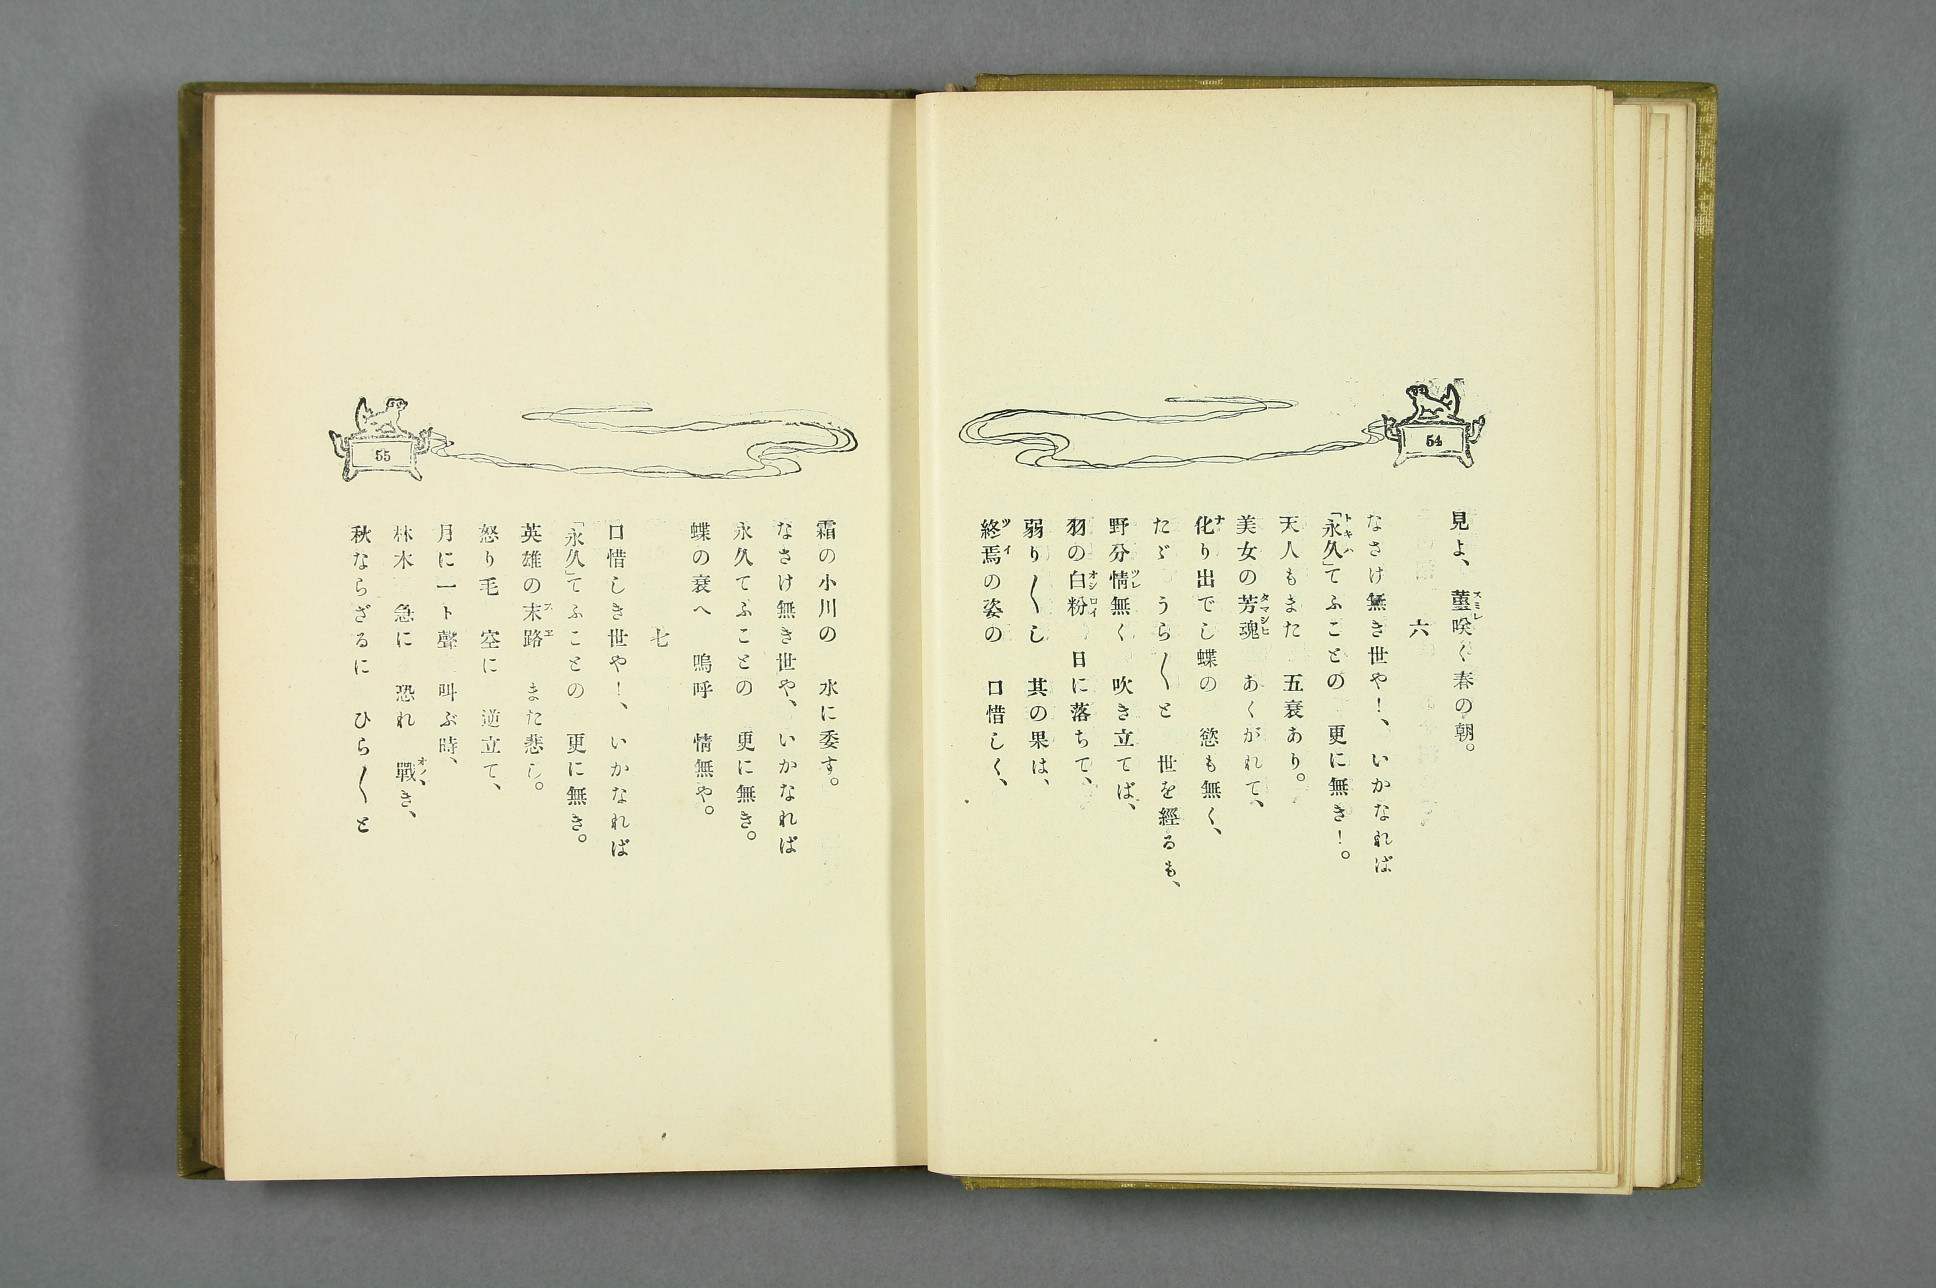 54
見よ、菫咲く春の朝。
六
なさけ無き世や！、いかなれば
「永久」てふことの　更に無き！。
天人もまた　五衰あり。
美女の芳魂　あくがれて、
化り出でし蝶の　慾も無く、
たゞ　うら〱と　世を經るも、
野分情無く　吹き立てば、
羽の白粉　日に落ちて、
弱り〱し　其の果は、
終焉の姿の　口惜しく、
55
霜の小川の　水に委す。
なさけ無き世や、いかなれば
永久てふことの　更に無き。
蝶の衰へ　嗚呼　情無や。
七
口惜しき世や！、いかなれば
「永久」てふことの　更に無き。
英雄の末路　また悲し。
怒り毛　空に　逆立て、
月に一ト聲　叫ぶ時、
林木　急に　恐れ　戰き、
秋ならざるに　ひら〱と